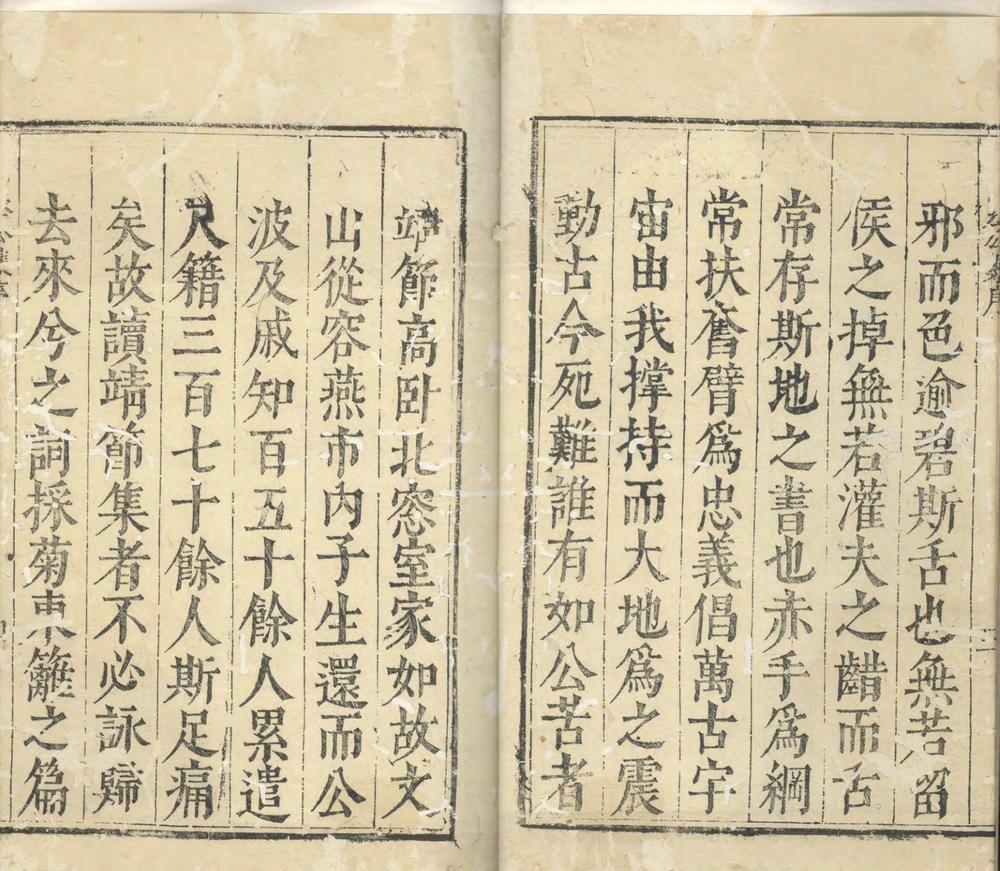 邪而色逾碧斯舌也無若留
侯之掉無若灌夫之齰而舌
常存斯地之書也赤手爲綱
常扶奮臂爲忠義倡萬古宇
宙由我撑持而大地爲之震
動古今死難誰有如公苦者
靖節高卧北窓室家如故文
山從容燕市内子生還而公
波及戚知百五十餘人累遣
尺籍三百七十餘人斯足痛
矣故讀靖節集者不必詠歸
去來兮之詞採菊東籬之篇